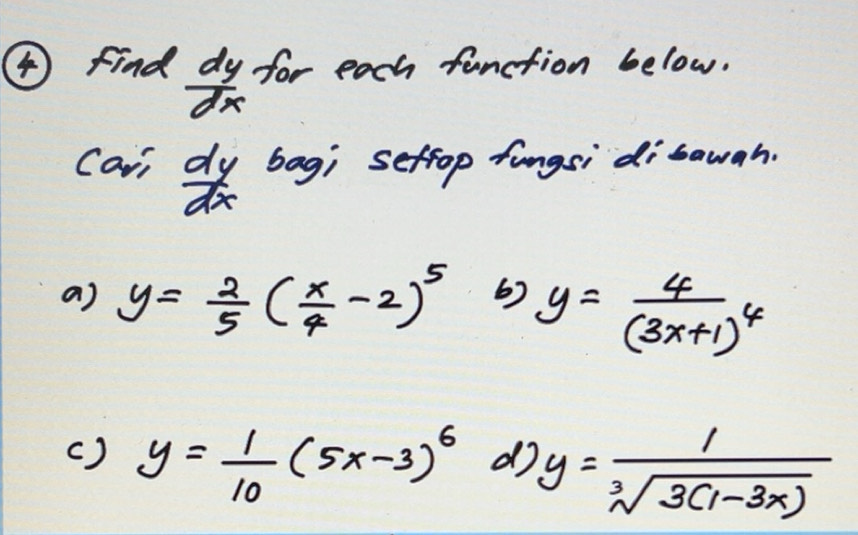 ④ Find dy/dx for each function below.
Cari dy/dx bagi setiap fungsi di bawah.
a) y = 2/5 (x/4 - 2)^5 b) y = 4/(3x+1)^4
c) y = 1/10 (5x-3)^6 d) y = 1/∛(3(1-3x))